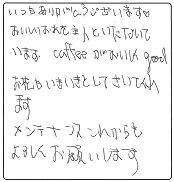 いつもありがとうございます。
おいしいお花を主人といただいて
います。caffeeがおいしくgood
お花もいきいきとしてさいてくれ
ます
メンテナンスこれからも
よろしくお願いします